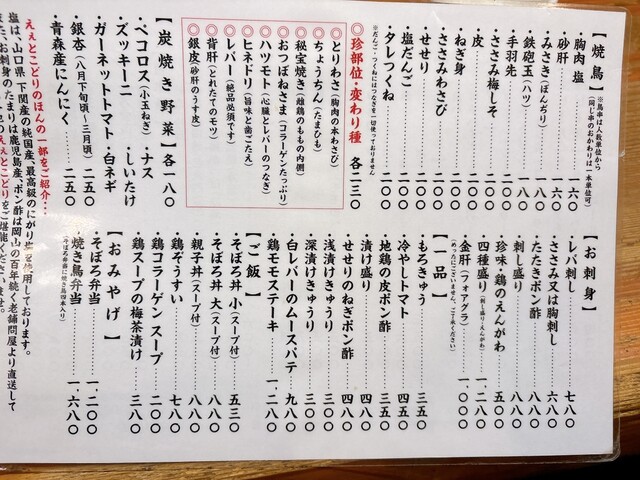 【焼鳥】※馬串は人数単位から(同じ串のおかわりは一本単位可)
・胸肉塩 一六〇
・砂肝 一六〇
・みさき(ぼんぢり) 一八〇
・鉄砲玉(ハツ) 一八〇
・手羽先 二〇〇
・ささみ梅しそ 二〇〇
・皮 二〇〇
・ねぎ身 二〇〇
・ささみわさび 二〇〇
・せせり 二〇〇
・塩だんご 二〇〇
・タレつくね 二〇〇
※だんご、つくねにはつなぎを一切使っておりません
◎珍部位、変わり種 各二三〇
◎とりわさ(胸肉の本わさび)
◎ちょうちん(たまひも)
◎秘宝焼き(雌鶏のももの内側)
◎おつぼねさま(コラーゲンたっぷり)
◎ハツモト(心臓とレバーのつなぎ)
◎ヒネドリ(旨味と歯ごたえ)
◎レバー(絶品必須です)
◎背肝(とれたてのモツ)
◎銀皮(砂肝のうす皮)
【炭焼き野菜】各一八〇
・ペコロス(小玉ねぎ)・ナス
・ズッキーニ ・しいたけ
・ガーネットトマト・白ネギ
・銀杏(八月下旬頃～三月頃) 二五〇
・青森産にんにく 二五〇
ええとこどりのほんの一部をご紹介…
塩は、山口県 下関産の純国産、最高級のにがり塩を使用しております。
また、お刺身のたまりは鹿児島産、ポン酢は岡山の百年続く老舗問屋より直送して
【お刺身】
・レバ刺し 七八〇
・ささみ又は胸刺し 六八〇
・たたきポン酢 五八〇
・刺し盛り 一、二八〇
・珍味・鶏のえんがわ 五〇〇
・四種盛り(刺し盛り・えんがわ) 一、二八〇
・金肝(フォアグラ) 一、〇〇〇
(めったにございません、ご了承ください)
【一品】
・もろきゅう 三五〇
・冷やしトマト 四五〇
・地鶏の皮ポン酢 三五〇
・漬け盛り 四八〇
・せせりのねぎポン酢 四八〇
・浅漬けきゅうり 三〇〇
・深漬けきゅうり 三〇〇
・白レバーのムースパテ 九八〇
・鶏モモステーキ 一、二八〇
【ご飯】
・そぼろ丼 小(スープ付) 五三〇
・そぼろ丼 大(スープ付) 八八〇
・親子丼(スープ付) 八八〇
・鶏ぞうすい 七八〇
・鶏コラーゲンスープ 二〇〇
・鶏スープの梅茶漬け 三八〇
【おみやげ】
・そぼろ弁当 一、二〇〇
・焼き鳥弁当 一、六八〇
(そぼろ弁当に焼き鳥四本入り)